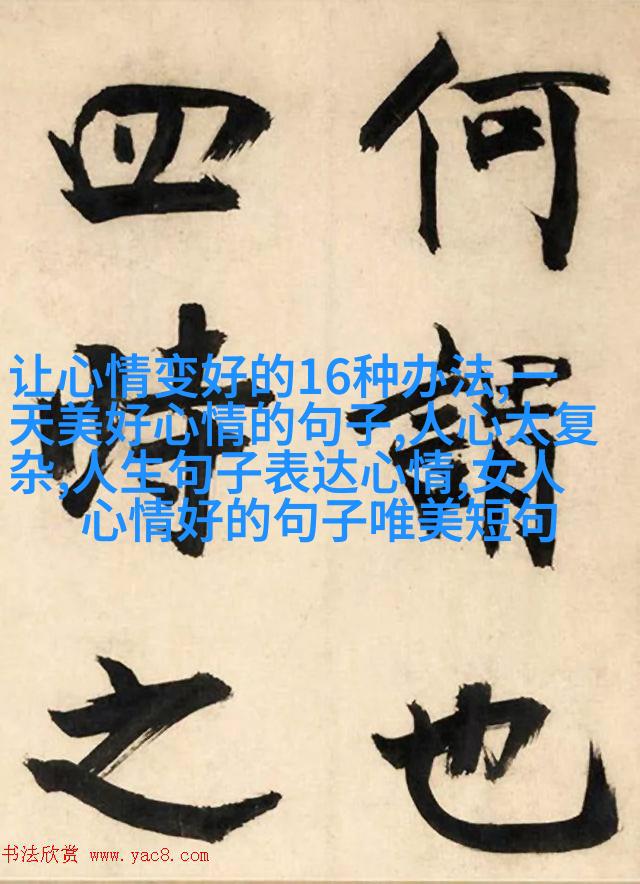 何謂也
四時之
让心情变好的16种办法,一
天美好心情的句子,人心太复
杂,人生句子表达心情,女人
心情好的句子唯美短句
书法欣赏 www.yac8.com